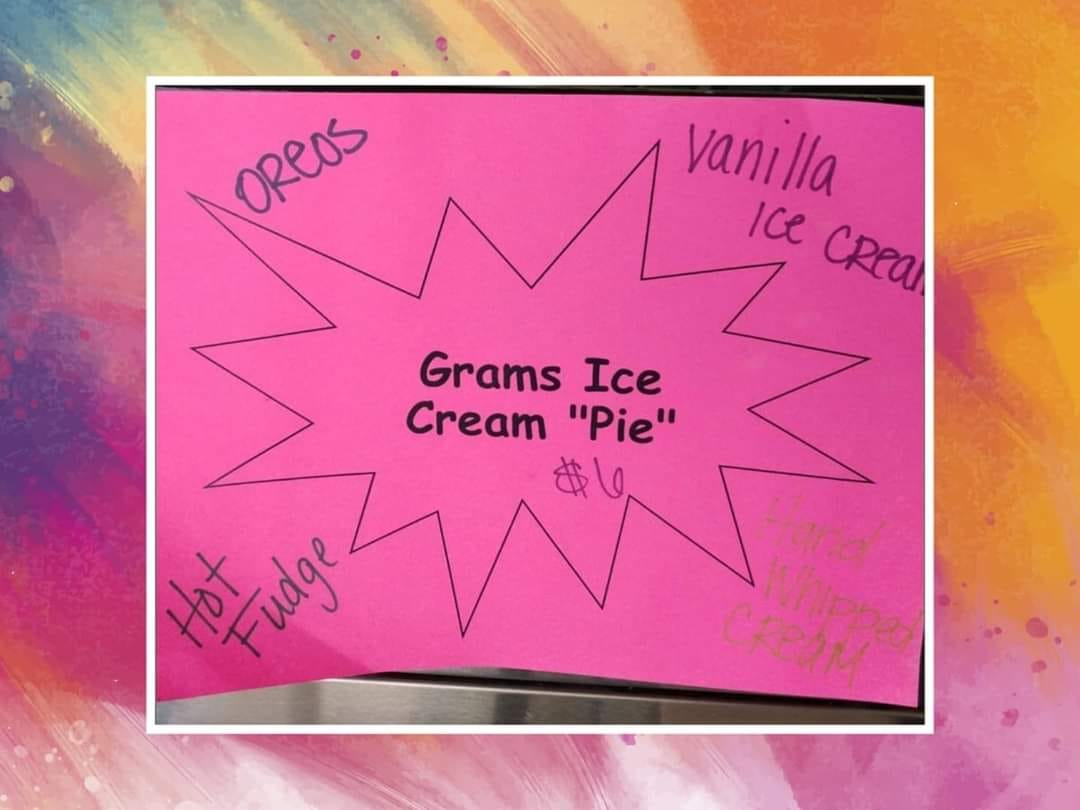 OREOS
Vanilla
Ice Cream
Grams Ice
Cream "Pie"
$6
Hot
Fudge
Hand
Whipped
CREAM